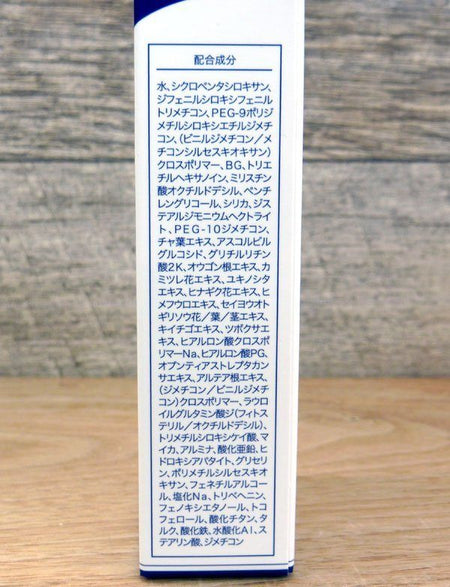 配合成分
水、シクロペンタシロキサン、
ジフェニルシロキシフェニル
トリメチコン、PEG-9ポリジ
メチルシロキシエチルジメチ
コン、(ビニルジメチコン／メ
チコンシルセスキオキサン)
クロスポリマー、BG、トリエ
チルヘキサノイン、ミリスチン
酸オクチルドデシル、ペンチ
レングリコール、シリカ、ジス
テアルジモニウムヘクトライ
ト、PEG-10ジメチコン、
チャ葉エキス、アスコルビル
グルコシド、グリチルリチン
酸2K、オウゴン根エキス、カ
ミツレ花エキス、ユキノシタ
エキス、ヒナギク花エキス、ヒ
メフウロエキス、セイヨウオト
ギリソウ花／葉／茎エキス、
キイチゴエキス、ツボクサエ
キス、ヒアルロン酸クロスポ
リマーNa、ヒアルロン酸PG、
オプンティアストレプタカン
サエキス、アルテア根エキス、
(ジメチコン／ビニルジメチ
コン)クロスポリマー、ラウロ
イルグルタミン酸ジ(フィトス
テリル／オクチルドデシル)、
トリメチルシロキシケイ酸、マ
イカ、アルミナ、酸化亜鉛、ヒ
ドロキシアパタイト、グリセリ
ン、ポリメチルシルセスキオ
キサン、フェネチルアルコー
ル、塩化Na、トリベヘニン、
フェノキシエタノール、トコ
フェロール、酸化チタン、タ
ルク、酸化鉄、水酸化Al、ス
テアリン酸、ジメチコン